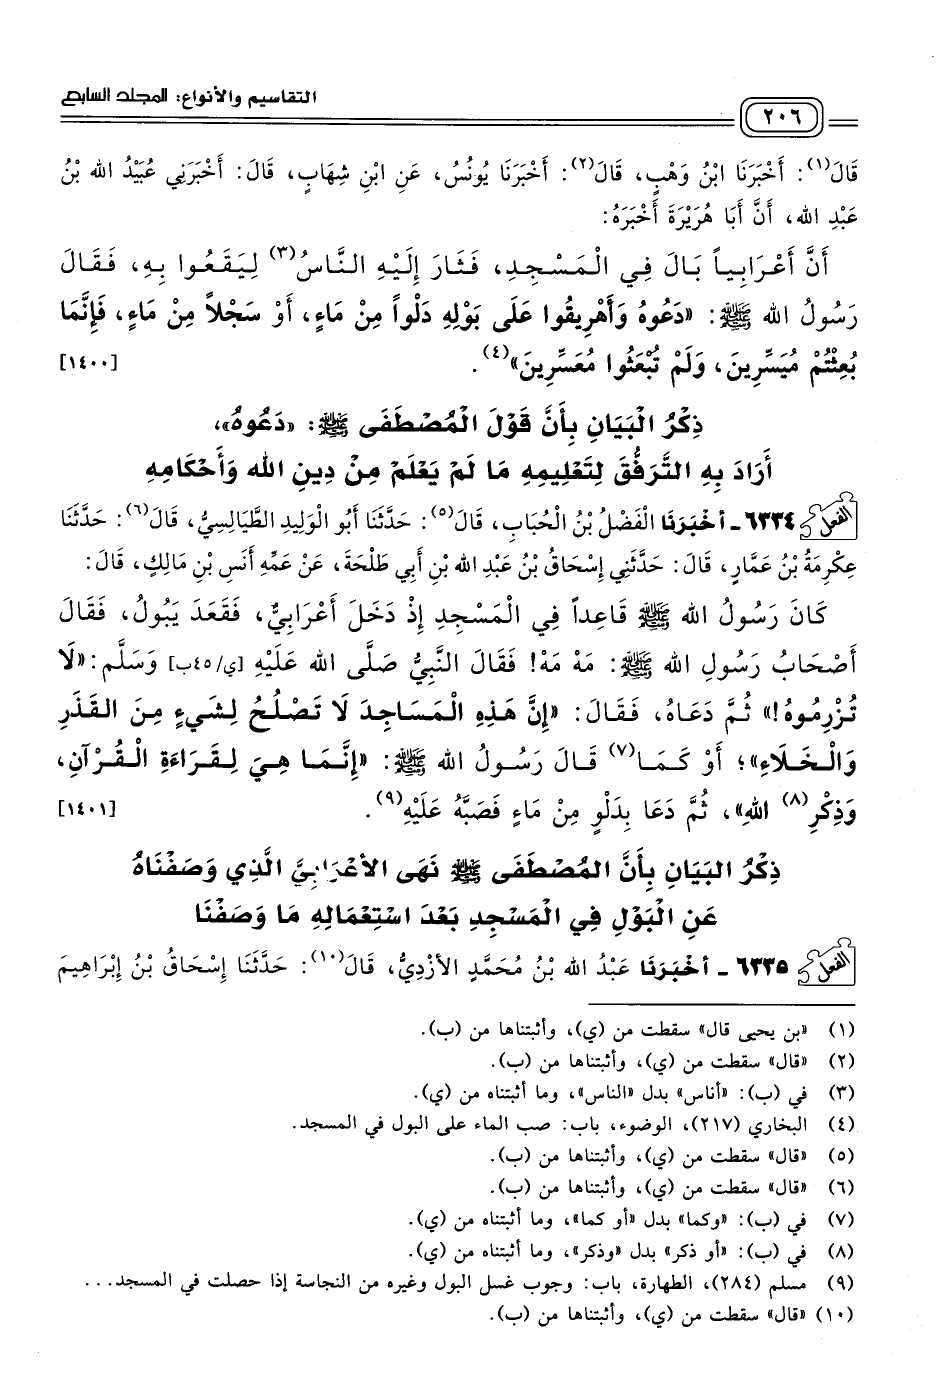 التقاسيم والأنواع: المجلد السابع
٢٠٦
قَالَ(١): أَخْبَرَنَا ابْنُ وَهْبٍ، قَالَ(٢): أَخْبَرَنَا يُونُسُ، عَنِ ابْنِ شِهَابٍ، قَالَ: أَخْبَرَنِي عُبَيْدُ الله بْنُ
عَبْدِ الله، أَنَّ أَبَا هُرَيْرَةَ أَخْبَرَهُ:
أَنَّ أَعْرَابِياً بَالَ فِي الْمَسْجِدِ، فَثَارَ إِلَيْهِ النَّاسُ(٣) لِيَقَعُوا بِهِ، فَقَالَ
رَسُولُ الله ﷺ: «دَعُوهُ وَأَهْرِيقُوا عَلَى بَوْلِهِ دَلْواً مِنْ مَاءٍ، أَوْ سَجْلاً مِنْ مَاءٍ، فَإِنَّمَا
بُعِثْتُمْ مُيَسِّرِينَ، وَلَمْ تُبْعَثُوا مُعَسِّرِينَ»(٤). [١٤٠٠]
ذِكْرُ الْبَيَانِ بِأَنَّ قَوْلَ الْمُصْطَفَى ﷺ: «دَعُوهُ»،
أَرَادَ بِهِ التَّرَفُّقَ لِتَعْلِيمِهِ مَا لَمْ يَعْلَمْ مِنْ دِينِ الله وَأَحْكَامِهِ
الفعل ٦٣٣٤ - أَخْبَرَنَا الْفَضْلُ بْنُ الْحُبَابِ، قَالَ(٥): حَدَّثَنَا أَبُو الْوَلِيدِ الطَّيَالِسِيُّ، قَالَ(٦): حَدَّثَنَا
عِكْرِمَةُ بْنُ عَمَّارٍ، قَالَ: حَدَّثَنِي إِسْحَاقُ بْنُ عَبْدِ الله بْنِ أَبِي طَلْحَةَ، عَنْ عَمِّهِ أَنَسِ بْنِ مَالِكٍ، قَالَ:
كَانَ رَسُولُ الله ﷺ قَاعِداً فِي الْمَسْجِدِ إِذْ دَخَلَ أَعْرَابِيٌّ، فَقَعَدَ يَبُولُ، فَقَالَ
أَصْحَابُ رَسُولِ الله ﷺ: مَهْ مَهْ! فَقَالَ النَّبِيُّ صَلَّى الله عَلَيْهِ [ي/٤٥ب] وَسَلَّم: «لَا
تُزْرِمُوهُ!» ثُمَّ دَعَاهُ، فَقَالَ: «إِنَّ هَذِهِ الْمَسَاجِدَ لَا تَصْلُحُ لِشَيْءٍ مِنَ الْقَذَرِ
وَالْخَلَاءِ»؛ أَوْ كَمَا(٧) قَالَ رَسُولُ الله ﷺ: «إِنَّمَا هِيَ لِقَرَاءَةِ الْقُرْآنِ،
وَذِكْرِ(٨) اللهِ»، ثُمَّ دَعَا بِدَلْوٍ مِنْ مَاءٍ فَصَبَّهُ عَلَيْهِ(٩). [١٤٠١]
ذِكْرُ الْبَيَانِ بِأَنَّ الْمُصْطَفَى ﷺ نَهَى الأَعْرَابِيَّ الَّذِي وَصَفْنَاهُ
عَنِ الْبَوْلِ فِي الْمَسْجِدِ بَعْدَ اسْتِعْمَالِهِ مَا وَصَفْنَا
الفعل ٦٣٣٥ - أَخْبَرَنَا عَبْدُ الله بْنُ مُحَمَّدٍ الأَزْدِيُّ، قَالَ(١٠): حَدَّثَنَا إِسْحَاقُ بْنُ إِبْرَاهِيمَ
(١) «بن يحيى قال» سقطت من (ي)، وأثبتناها من (ب).
(٢) «قال» سقطت من (ي)، وأثبتناها من (ب).
(٣) في (ب): «أناس» بدل «الناس»، وما أثبتناه من (ي).
(٤) البخاري (٢١٧)، الوضوء، باب: صب الماء على البول في المسجد.
(٥) «قال» سقطت من (ي)، وأثبتناها من (ب).
(٦) «قال» سقطت من (ي)، وأثبتناها من (ب).
(٧) في (ب): «وكما» بدل «أو كما»، وما أثبتناه من (ي).
(٨) في (ب): «أو ذكر» بدل «وذكر»، وما أثبتناه من (ي).
(٩) مسلم (٢٨٤)، الطهارة، باب: وجوب غسل البول وغيره من النجاسة إذا حصلت في المسجد...
(١٠) «قال» سقطت من (ي)، وأثبتناها من (ب).